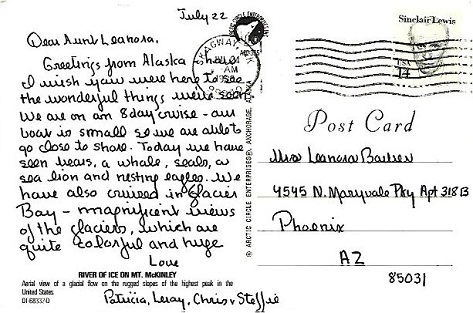 July 22
Dear Aunt Leanora,
Greetings from Alaska
I wish you were here to see
the wonderful things we've seen
We are on an 8 day cruise - our
boat is small so we are able to
go close to shore. Today we have
seen bears, a whale, seals, a
sea lion and nesting eagles. We
have also cruised in Glacier
Bay - magnificent views
of the glaciers, which are
quite colorful and huge
Love
Patricia, Leroy, Chris & Steffie
RIVER OF ICE ON MT. McKINLEY
Aerial view of a glacial flow on the rugged slopes of the highest peak in the
United States.
© ARCTIC CIRCLE ENTERPRISES®, ANCHORAGE,
SKAGWAY, AK
AM
Sinclair Lewis
USA
14
Post Card
Leanora
4545 N. Maryvale Pky Apt 318B
Phoenix
AZ
85031